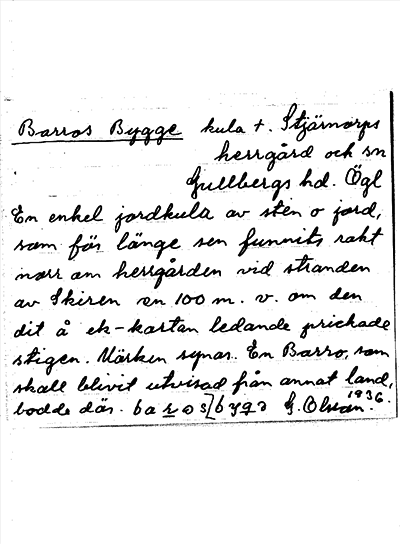 Barros Bygge kula t. Stjärnorps
herrgård och sn
Gullbergs hd. Ögl
En enkel jordkula av sten o jord,
som för länge sen funnits rakt
norr om herrgården vid stranden
av Skiren en 100 m. v. om den
dit å ek-kartan ledande prickade
stigen. Märken synas. En Barro, som
skall blivit utvisad från annat land,
bodde där. baros]byga G. Olson. 1936.